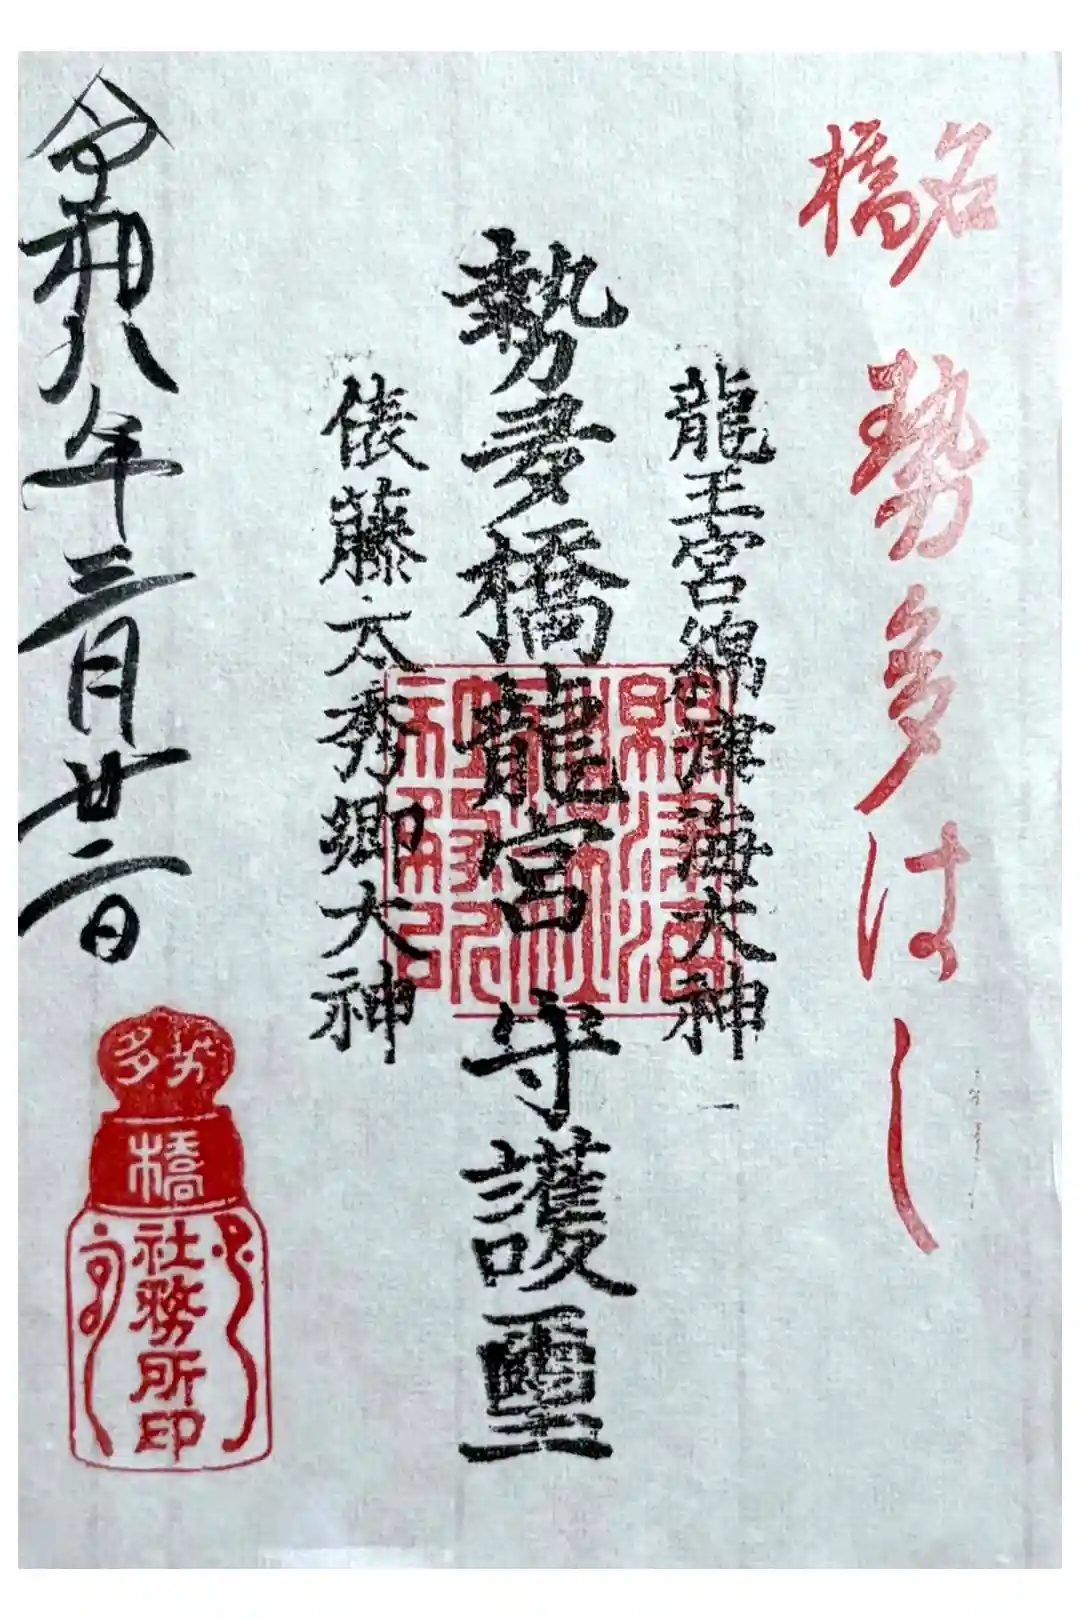 名橋
勢多はし
龍王宮綿津海大神
勢多橋龍宮 守護璽
俵藤太秀郷大神
令和八年三月廿二日
勢多
橋
社務所印